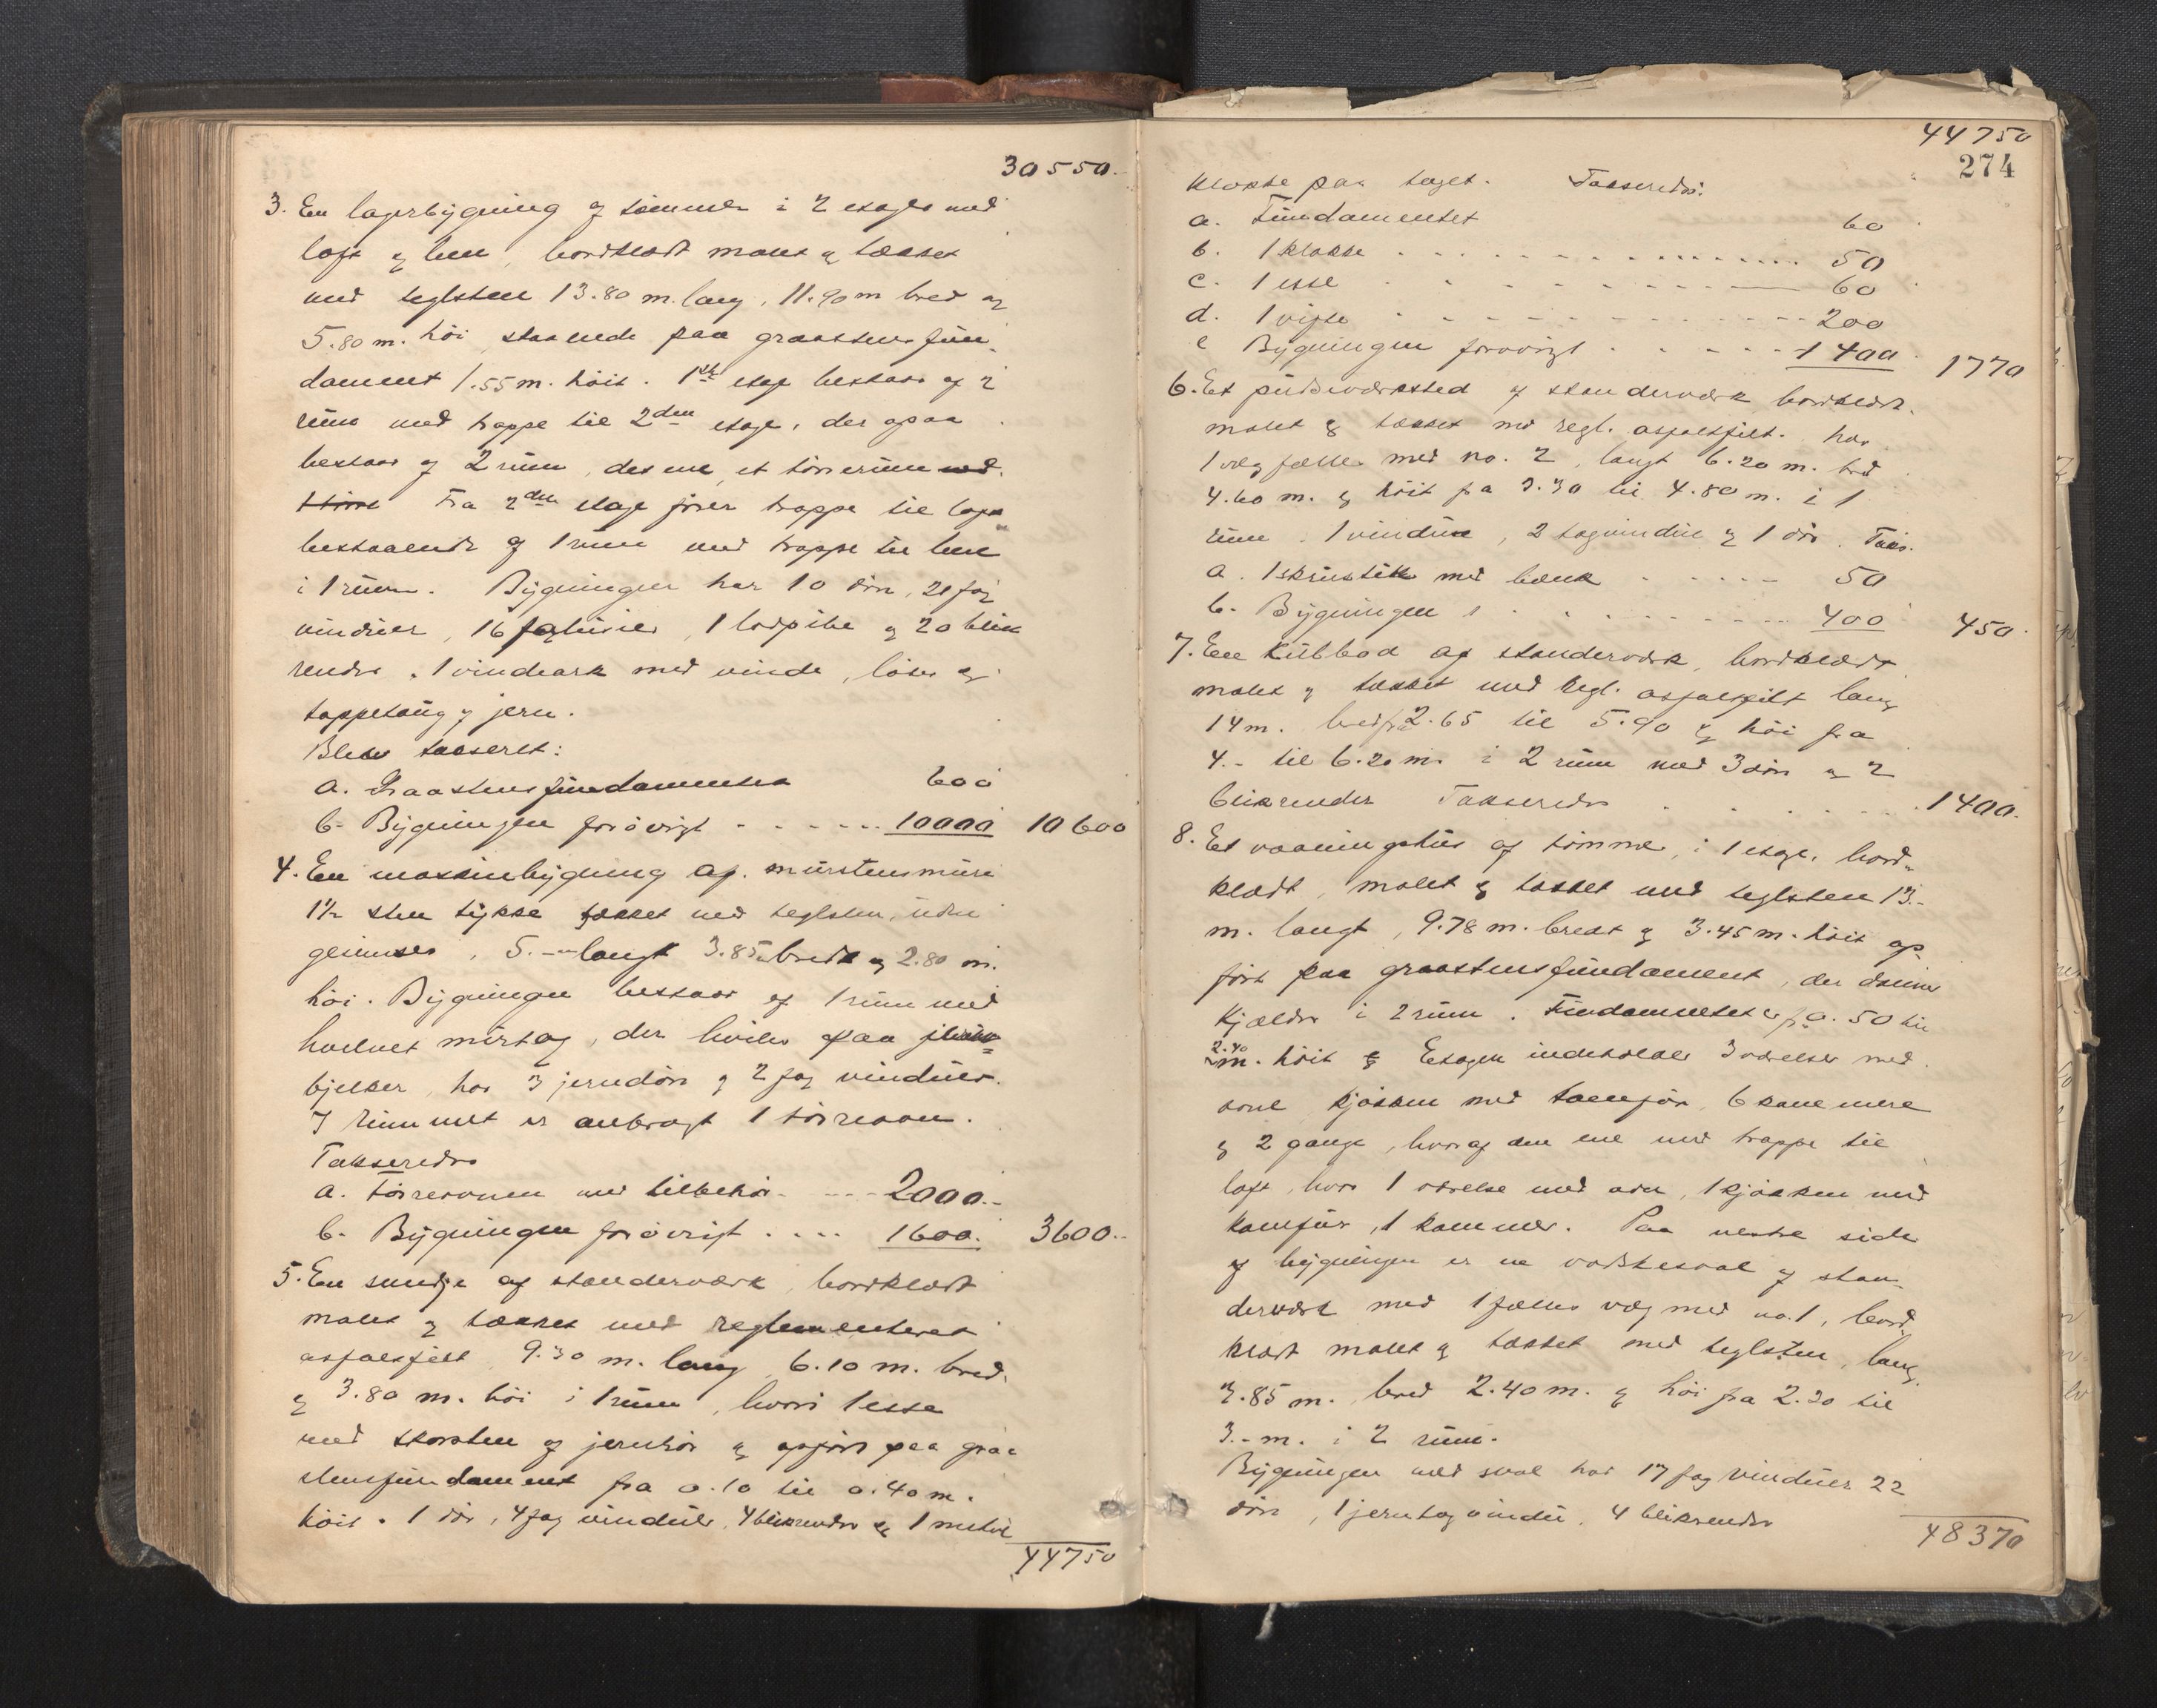 30550.-
3. En lagerbygning af tømmer i 2 etager med
loft og hem, bordklædt malet og tækket
med teglsten 13.80 m. lang, 11.90 m bred og
5.80 m. høi staaende paa graastensfun-
dament 1.55 m. høit. 1ste etage bestaar af 2
rum med trappe til 2den etage, der ogsaa
bestaar af 2 rum, det ene et tørrerum med
Fra 2den etage fører trappe til loft
bestaaende af 1 rum med trappe til hem
i 1 rum. Bygningen har 10 døre, 21 fag
vinduer, 16 faglucer, 1 lodpibe og 20 blik
render. 1 vindeark med vinde, løber og
tappetaug af jern.
Blev takseret:
a. Graastensfundamentet 600
b. Bygningen forøvrigt - - - - - - 10000 10600
4. En maskinbygning af murstensmure
1½ sten tykke tækket med teglsten, uden
gesimser, 5.- m langt 3.85 m bredt og 2.80 m.
høi. Bygningen bestaar af 1 rum med
hvelvet murtag, der hviler paa
bjelker, har 3 jerndøre og 2 fag vinduer.
I rummet er anbragt 1 tørreovn.
Takseredes
a. tørreovnen med tilbehør - - - - 2000.-
b. Bygningen forøvrigt . . . . 1600. 3600.-
5. En smedje af standerværk, bordklædt
malet og tækket med reglementeret
asfaltfilt 9.30 m. lang 6.10 m. bred
og 3.80 m. høi i 1 rum, hvori 1 esse
med skorsten og jernrør og opført paa graa
stensfundament fra 0.10 til 0.40 m.
høit. 1 dør, 4 fag vinduer, 4 blikrender og 1
44750
44750
274
klokke paa taget. Takseredes:
a. Fundamentet 60
b. 1 klokke . . . . . . . . . . 50
c. 1 esse . . . . . . . . 60
d. 1 vifte . . . . . . . . . . 200
e Bygningen forøvrigt . . . . . . 1400 1770
6. Et pudseværksted af standerværk bordklædt.
malet og tækket med regl. asfaltfilt. har
1 væg fælles med no. 2, langt 6.20 m. bred
4.60 m. og høit fra 3.30 til 4.80 m. i 1
rum. 1 vindue, 2 tagvindue og 1 dør. Taks.
a. 1 skrustik med bænk . . . . . . 50
b. Bygningen . . . . . . . . . 400 450.
7. En Kulbod af standerværk, bordklædt
malet og tækket med regl. asfaltfilt lang
14 m. bred fra 2.65 til 5.90 og høi fra
4.- til 6.20 m. i 2 rum med 3 døre og 2
blikrender Takseredes . . . . . . . 1400.
8. Et vaaningshus af tømmer, i 1 etage, bord-
klædt, malet og tækket med teglsten 13.-
m. langt, 9.78 m. bredt og 3.45 m. høit op-
ført paa graastensfundament, der danner
Kjælder i 2 rum. Fundamentet er fra 0.50 til
2.40
m. høit og Etagen indeholder 3 værelser med
ovne kjøkken med komfur, 6 kammere
og 2 gange, hvoraf den ene med trappe til
loft, hvor 1 værelse med ovn, 1 kjøkken med
komfur, 1 kammer. Paa vestre side
af bygningen er en vadskesval af stan-
derværk med 1 fælles væg med no. 1, bord-
klædt malet og tækket med teglsten, lang
3.85 m. bred 2.40 m. og høi fra 2.30 til
3.- m. i 2 rum.
Bygningen med sval har 17 fag vinduer 22
døre, 1 jerntagvindu, 4 blikrender
48370